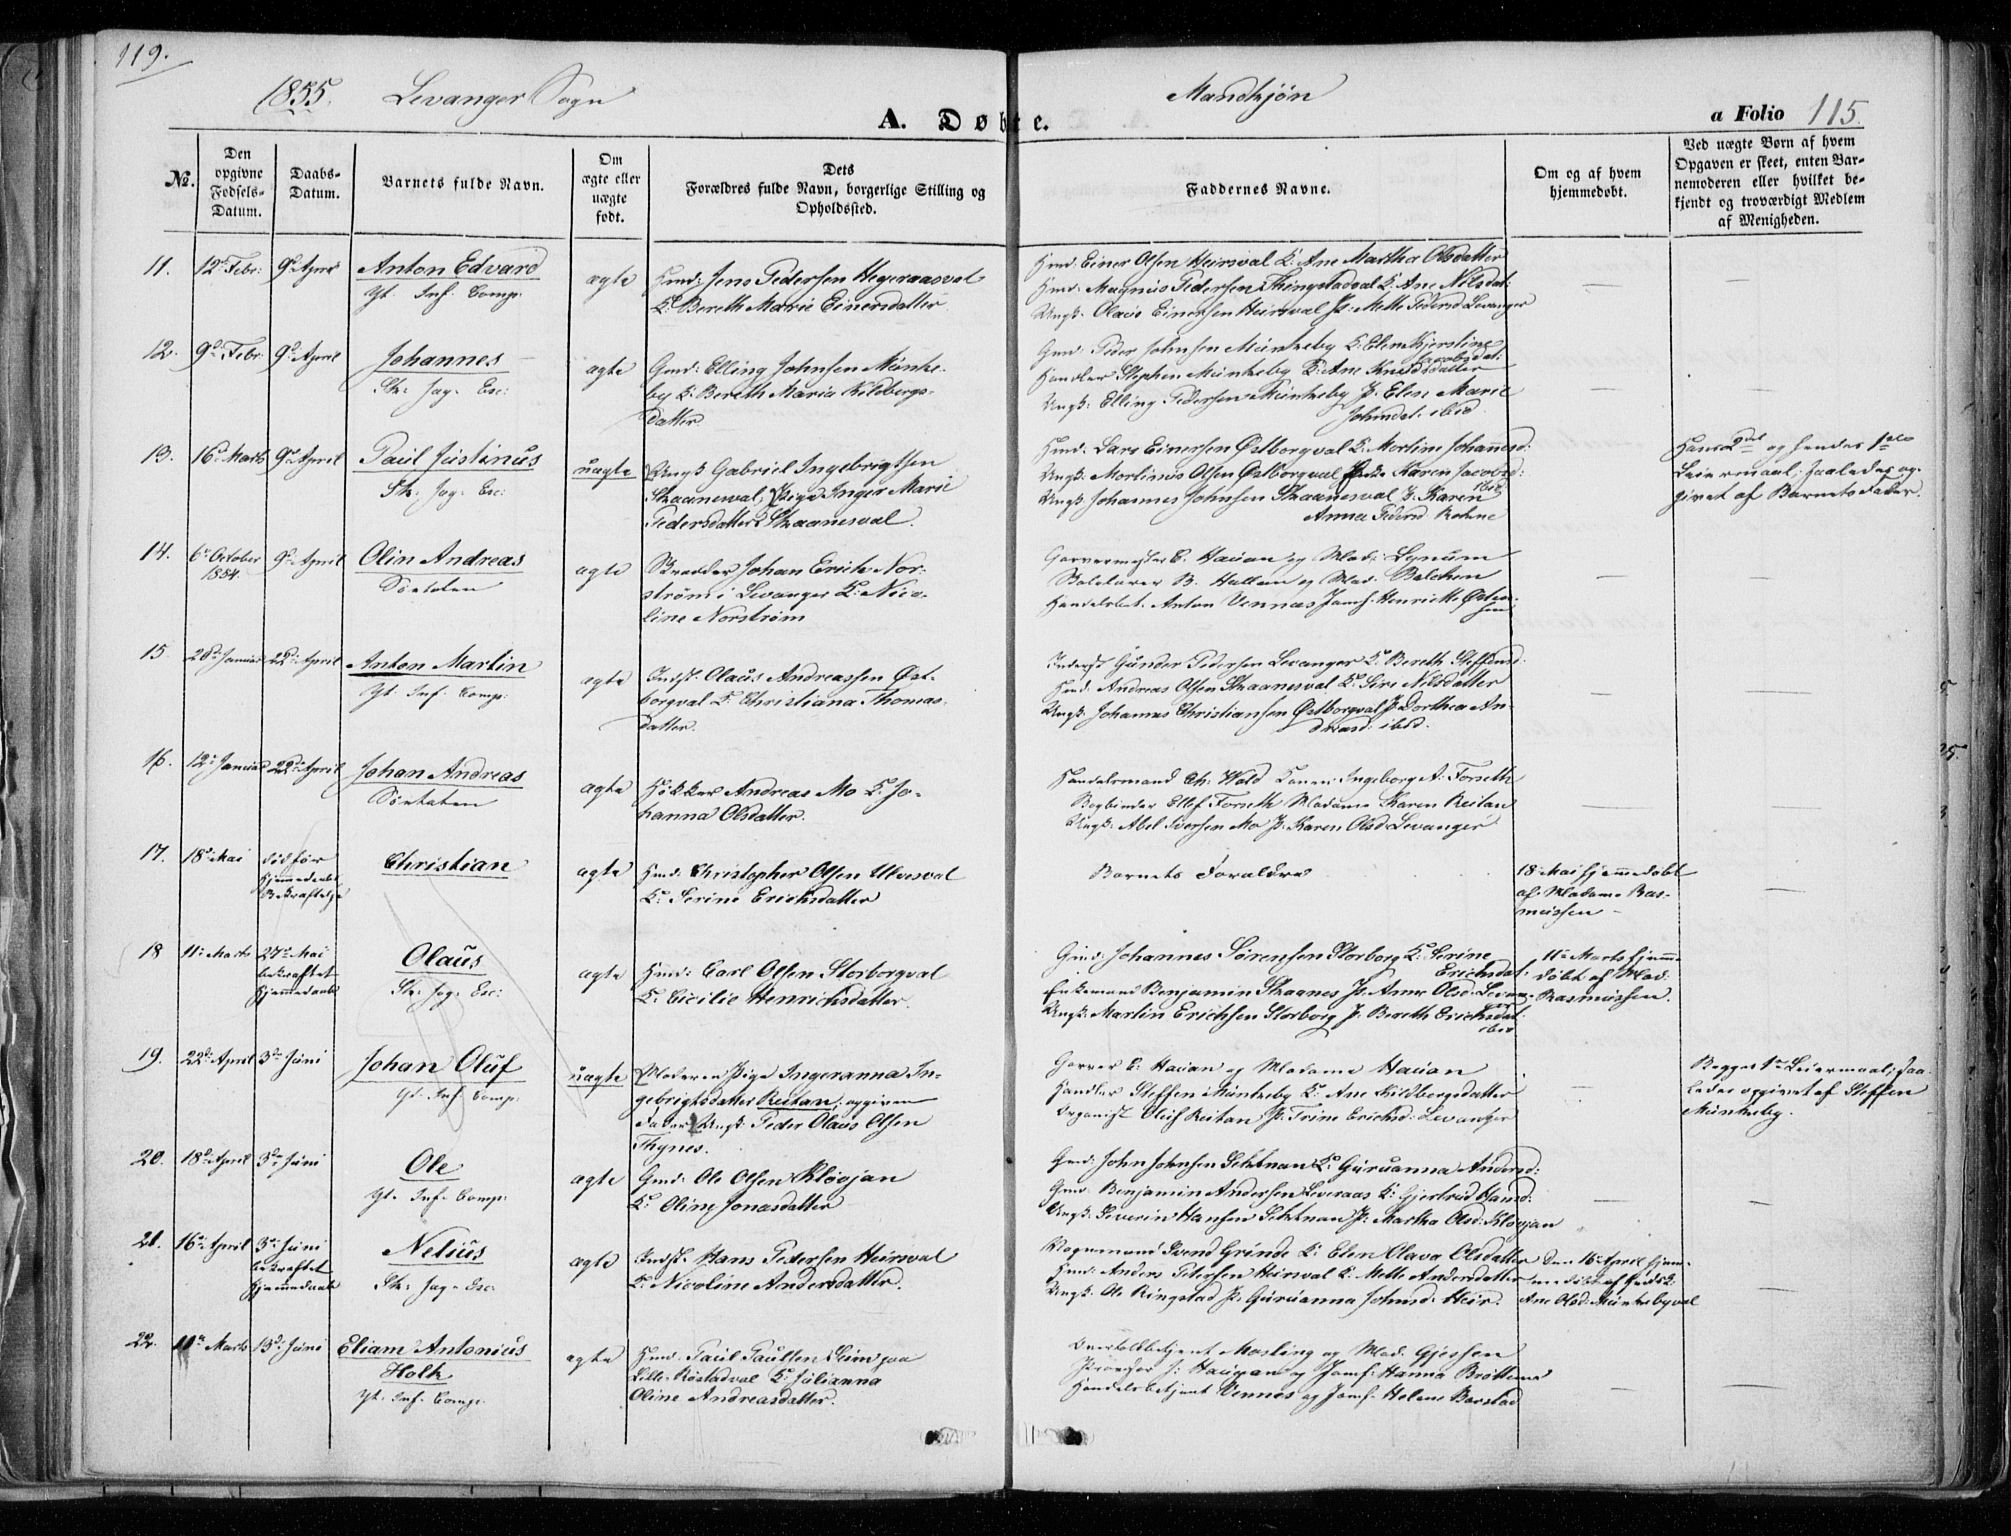 119.
1855. Levanger Sogn
Mandkjøn
A. Døbte.
a Folio 115.
No.
Den opgivne Fødsels-Datum.
Daabs-Datum.
Barnets fulde Navn.
Om ægte eller uægte født.
Dets Forældres fulde Navn, borgerlige Stilling og Opholdssted.
Faddernes Navne.
Om og af hvem hjemmedøbt.
Ved uægte Børn af hvem Opgaven er skeet, enten Barnemoderen eller hvilket bekjendt og troværdigt Medlem af Menigheden.
11. 12te Febr: 9de April Anton Edvard
Yt. Inf. Comp:
ægte
Huusm: Jens Pedersen Hegeraasval
K: Bereth Marie Einersdatter
Huusm: Einer Olsen Heirsval K: Ane Martha Olsdatter
Huusm: Magnus Pedersen Thingstadval K: Ane Nilsdat:
Ungk: Olaus Einersen Heirsval P: Mette Pedersd Levanger
12. 9de Febr: 9de April Johannes
Sk: Jag: Esc:
ægte
Gmd: Elling Johnsen Munke-
by K: Bereth Maria Kildbergs-
datter
Gmd: Peder Johnsen Munkeby K: Elen Kjerstine
Jacobsdat:
Handler Stephen Munkeby K: Ane Knudsdatter
Ungk: Elling Pedersen Munkeby P: Elen Marie
Johnsdat. ibid
13. 16de Marts 9de April Paul Justinus
Sk: Jag: Esc:
uægte
Ungk Gabriel Ingebrigtsen
Skaanesval, Pige Inger Marie
Pedersdatter Skaanesval.
Huusm: Lars Einersen Østborgval K: Mortine Johannesd:
Ungk: Mortinus Olsen Østborgval Pike Karen Jacobsd:
ibid
Ungk: Johannes Johnsen Skaanesval P: Karen
Anna Pedersd
Hans 2det og hendes 1ste
Leiermaal; saaledes op-
givet af Barnets Fader.
14. 6te October
1854. 9de April Olin Andreas
Søeboten
ægte
Skrædder Johan Erich Nor-
strøm i Levanger K: Nico-
line Norstrøm
Garvermester E. Hauan og Mad: Lynum
B. Hallan og Mad. Balchen
Handelsbet. Anton Vennes Jomf. Henriette Østen-
sen
15. 28de Januar 22de April Anton Martin
Yt. Inf. Comp:
ægte
Indst. Olaus Andreassen Øst-
borgval K: Christiana Thomas-
datter.
Inderst Gunder Pedersen Levanger K: Bereth Steffensd.
Huusm: Andreas Olsen Skaanesval K: Siri Nilsdatter
Ungk: Johannes Christiansen Østborgval P: Dorthea An-
dreasd: ibid.
16. 12te Januar 22de April Johan Andreas
ægte
Høkker Andreas Mo K: Jo-
hanna Olsdatter.
Handelsmand Ch: Wold Konen Ingeborg A: Forseth
Bogbinder Ellef Forseth Madame Karen Reitan
Ungk: Abel Iversen Mo P: Karen Olsd: Levanger
17. 18de Mai død før
Hjemmedaabs
Bekræftelse
Christian
ægte
Huusm: Christopher Olsen Ulvesval
K: Serine Erichsdatter
Barnets Forældre
18de Mai hjemmedøbt
af Madame Ras-
mussen –
18 11te Marts 27de Mai
bekræftet
Hjemmedaab
Olaus
Sk: Jag: Esc:
ægte
Huusm: Carl Olsen Storborgval
K: Cicilie Henrichsdatter.
Gmd: Johannes Sørensen Storborg K: Serine
Erichsdat.
Enkemand Benjamin Skaanes P: Anne Olsd. Levan-
ger
Ungk: Martin Erichsen Storborg P: Bereth Erichsdat.
ibid
11te Marts hjemme
døbt af Mad.
Rasmussen.
19. 22de April 3de Juni Johan Oluf
Yt. Inf. Comp:
uægte
Moderen Pige Ingeranna In-
gebrigtsdatter Reitan; opgiven
Fader Ungk: Peder Olaus Olsen
Thynes.
Garver E. Hauan og Madame Hauan
Handler Steffen Munkeby K: Ane Kildbergsdatter
Organist Oluf Reitan P: Trine Erichsd: Levanger
Begges 1ste Leiermaal; saa-
ledes opgivet af Steffen
Munkeby.
20. 18de April 3de Juni Ole
Yt. Inf. Comp:
ægte
Gmd: Ole Olsen Kløvjan
K: Oline Jonasdatter
Gmd: John Johnsen Sæhtnan K: Guruanna Andersd:
Gmd: Benjamin Andersen Leveraas K: Gjertrud Hansd:
Ungk: Severin Hansen Sæhtnan P: Martha Olsd: Kløvjan
21. 16de April 3de Juni
bekræftet
Hjemmedaab
Nelius
Sk: Jag: Esc:
ægte
Indst. Hans Pedersen Heirsval
K: Nicoline Andersdatter.
Vognmand Svend Grinde K: Elen Olava Olsdatter
Huusm: Anders Petersen Heirsval K: Mette Andersdatter
Ungk: Ole Ringstad P: Guruanna Johnsd: Heir.
Den 16de April hjem-
medøbt af
Ane Olsd: Munkebyval
22. 11te Marts 13de Juni Eliam Antonius
Holk
Yt. Inf. Comp:
ægte
Huusm: Paul Paulsen Eim paa
Lille Røstadval K: Julianna
Oline Andreasdatter.
Overtoldbetjent Mosling og Mad. Gjessen
Hauan og Jomf: Hanna Brøttem
Handelsbetjent Vennes og Jomf: Helene Barstad